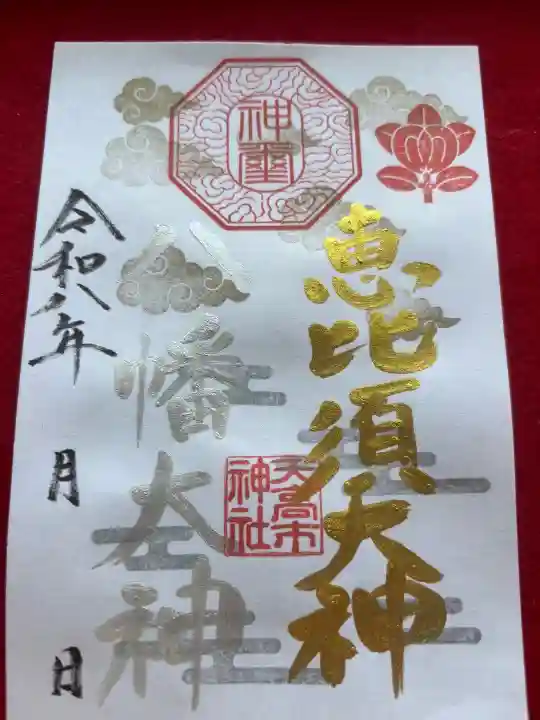 神璽
恵比須大神
八幡大神
天高市
神社
令和八年
月
日